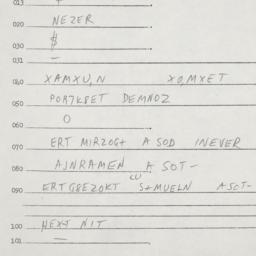 013
020 NEZER
030 $
031 —
040 XAMXU,N XOMXET
050 POA7KBET DEMNOZ
060 O
070 ERT MIRZOG+ A SOD INEVER
080 AJNRAMEN A SOT-
090 ERTGBEZOKT S+MUELN ASOT-
100 HEXT NIT
101 —